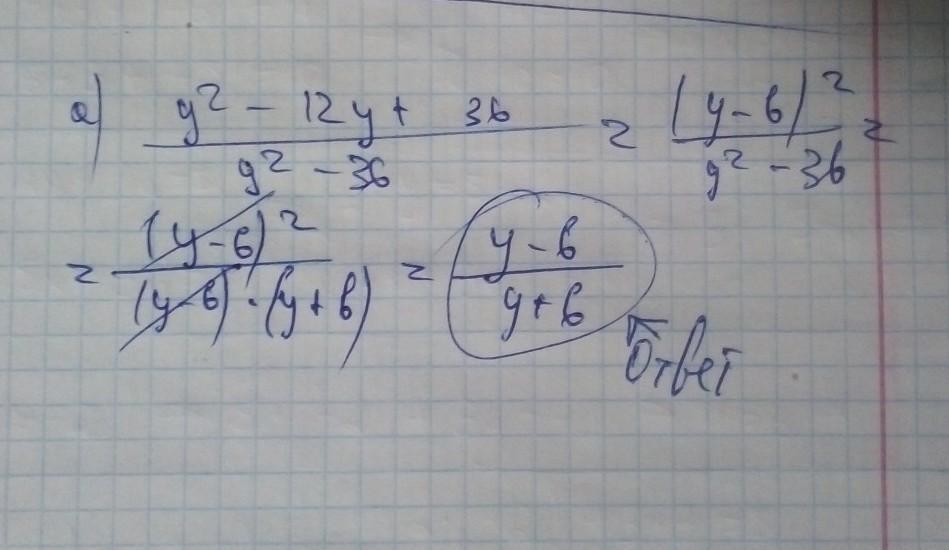 а) (y² - 12y + 36)/(y² - 36) = (y-6)²/(y² - 36) =
= (y-6)²/((y-6)·(y+6)) = (y-6)/(y+6)
Ответ